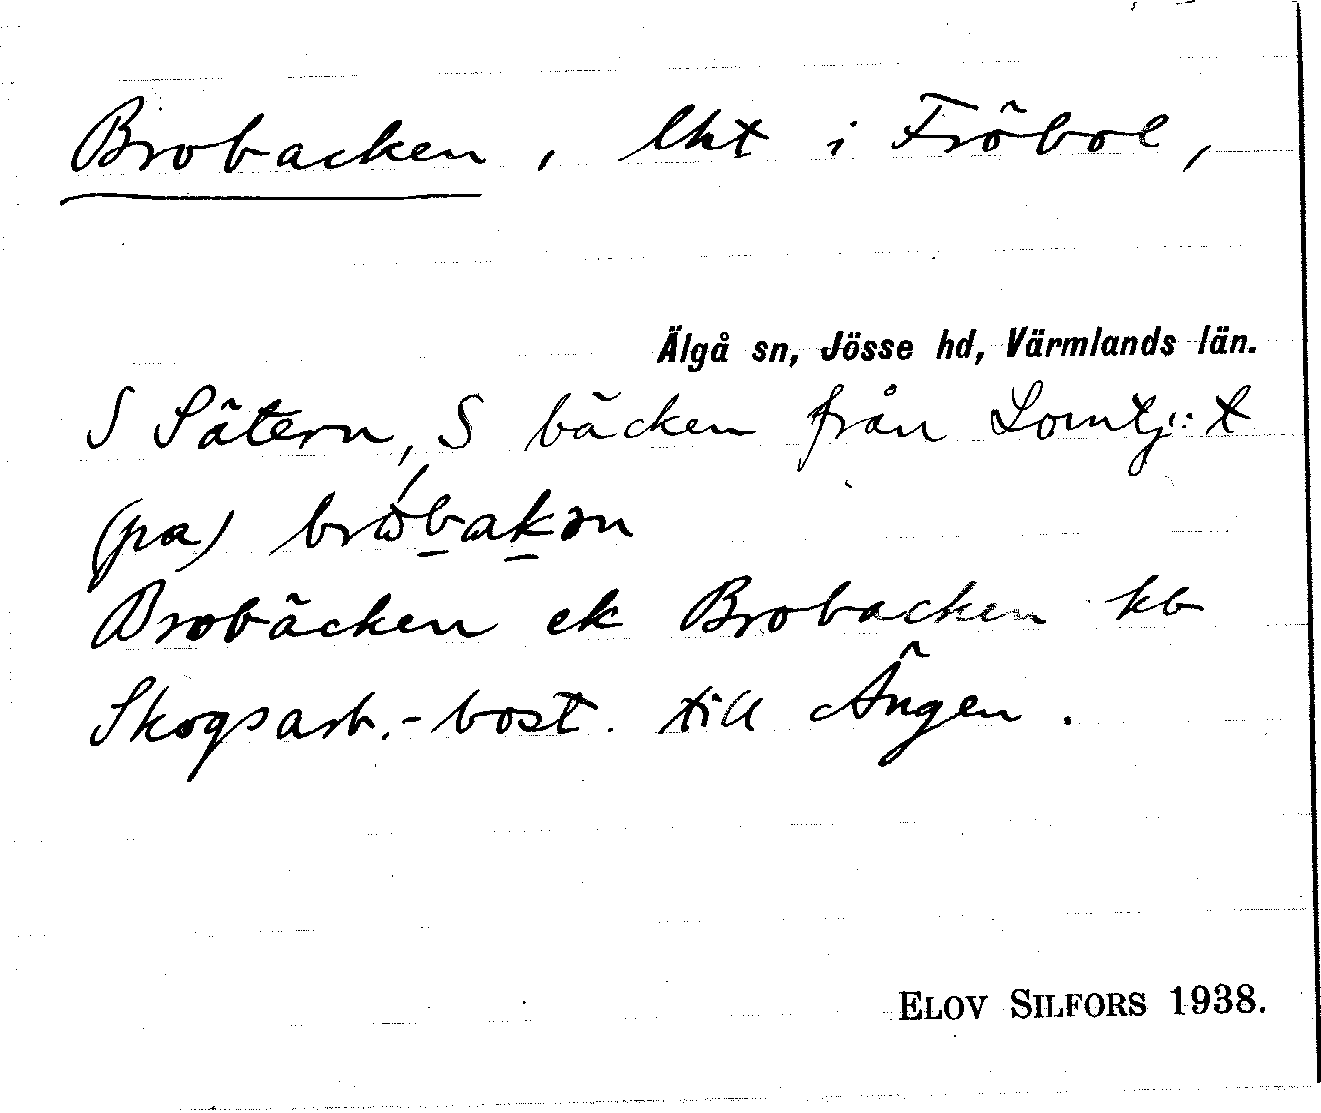 Brobacken, lht i Fröbol,
Älgå sn, Jösse hd, Värmlands län.
S Sätern, S bäcken från Lomtj:t
(pa) brόbakən
Brobäcken ek Brobacken kb
Skogsarb.-bost. till Ängen.
ELOV SILFORS 1938.